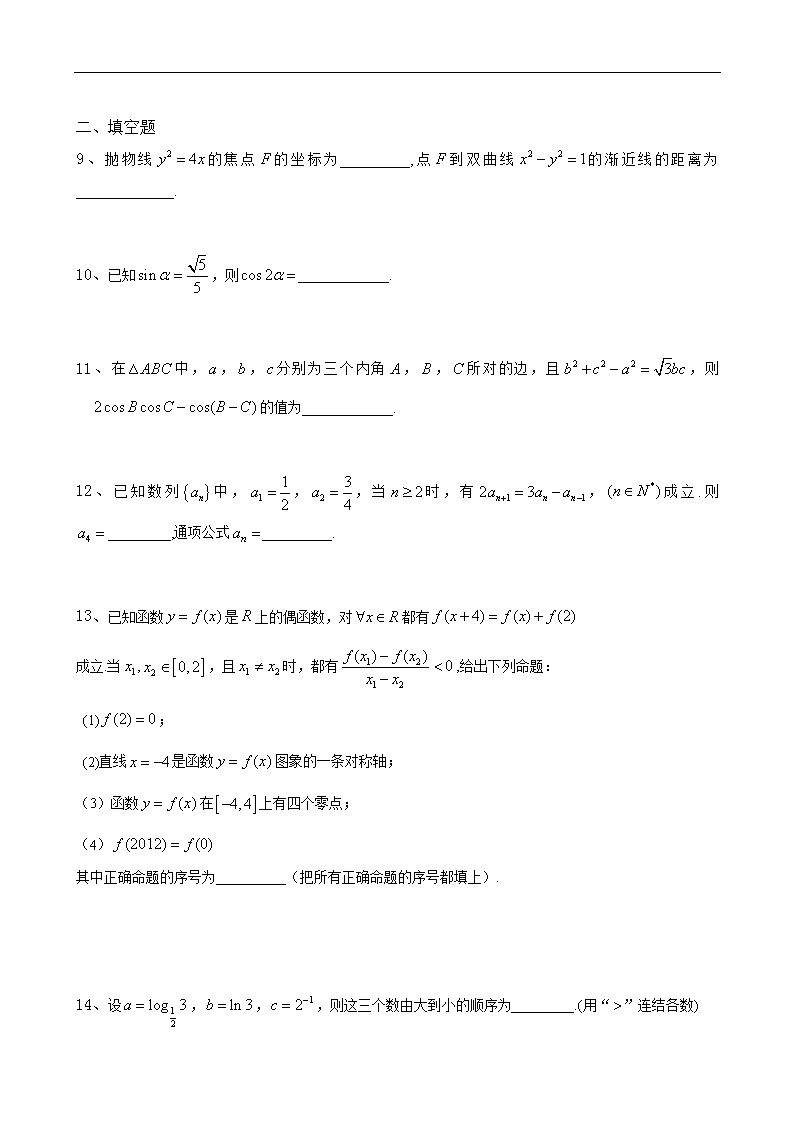 二、填空题
9、抛物线 y² = 4x 的焦点 F 的坐标为_________,点 F 到双曲线 x² − y² = 1的渐近线的距离为
_____________.
10、已知 sin α = √5/5 ,则 cos 2α = ____________.
11、在 △ABC 中, a , b , c 分别为三个内角 A , B , C 所对的边,且 b² + c² − a² = √3bc ,则
2cos B cos C − cos(B − C) 的值为____________.
12、已知数列 {aₙ} 中, a₁ = 1/2 , a₂ = 3/4 ,当 n ≥ 2 时,有 2aₙ₊₁ = 3aₙ − aₙ₋₁ , (n ∈ N*) 成立.则
a₄ = ________,通项公式 aₙ = _________.
13、已知函数 y = f(x) 是 R 上的偶函数,对 ∀x ∈ R 都有 f(x+4) = f(x) + f(2)
成立.当 x₁, x₂ ∈ [0, 2] ,且 x₁ ≠ x₂ 时,都有 (f(x₁) − f(x₂))/(x₁ − x₂) < 0 ,给出下列命题:
(1) f(2) = 0 ;
(2)直线 x = −4 是函数 y = f(x) 图象的一条对称轴;
(3)函数 y = f(x) 在 [−4, 4] 上有四个零点;
(4) f(2012) = f(0)
其中正确命题的序号为_________(把所有正确命题的序号都填上).
14、设 a = log_{1/2} 3 , b = ln 3 , c = 2⁻¹ ,则这三个数由大到小的顺序为________.(用“ > ”连结各数)